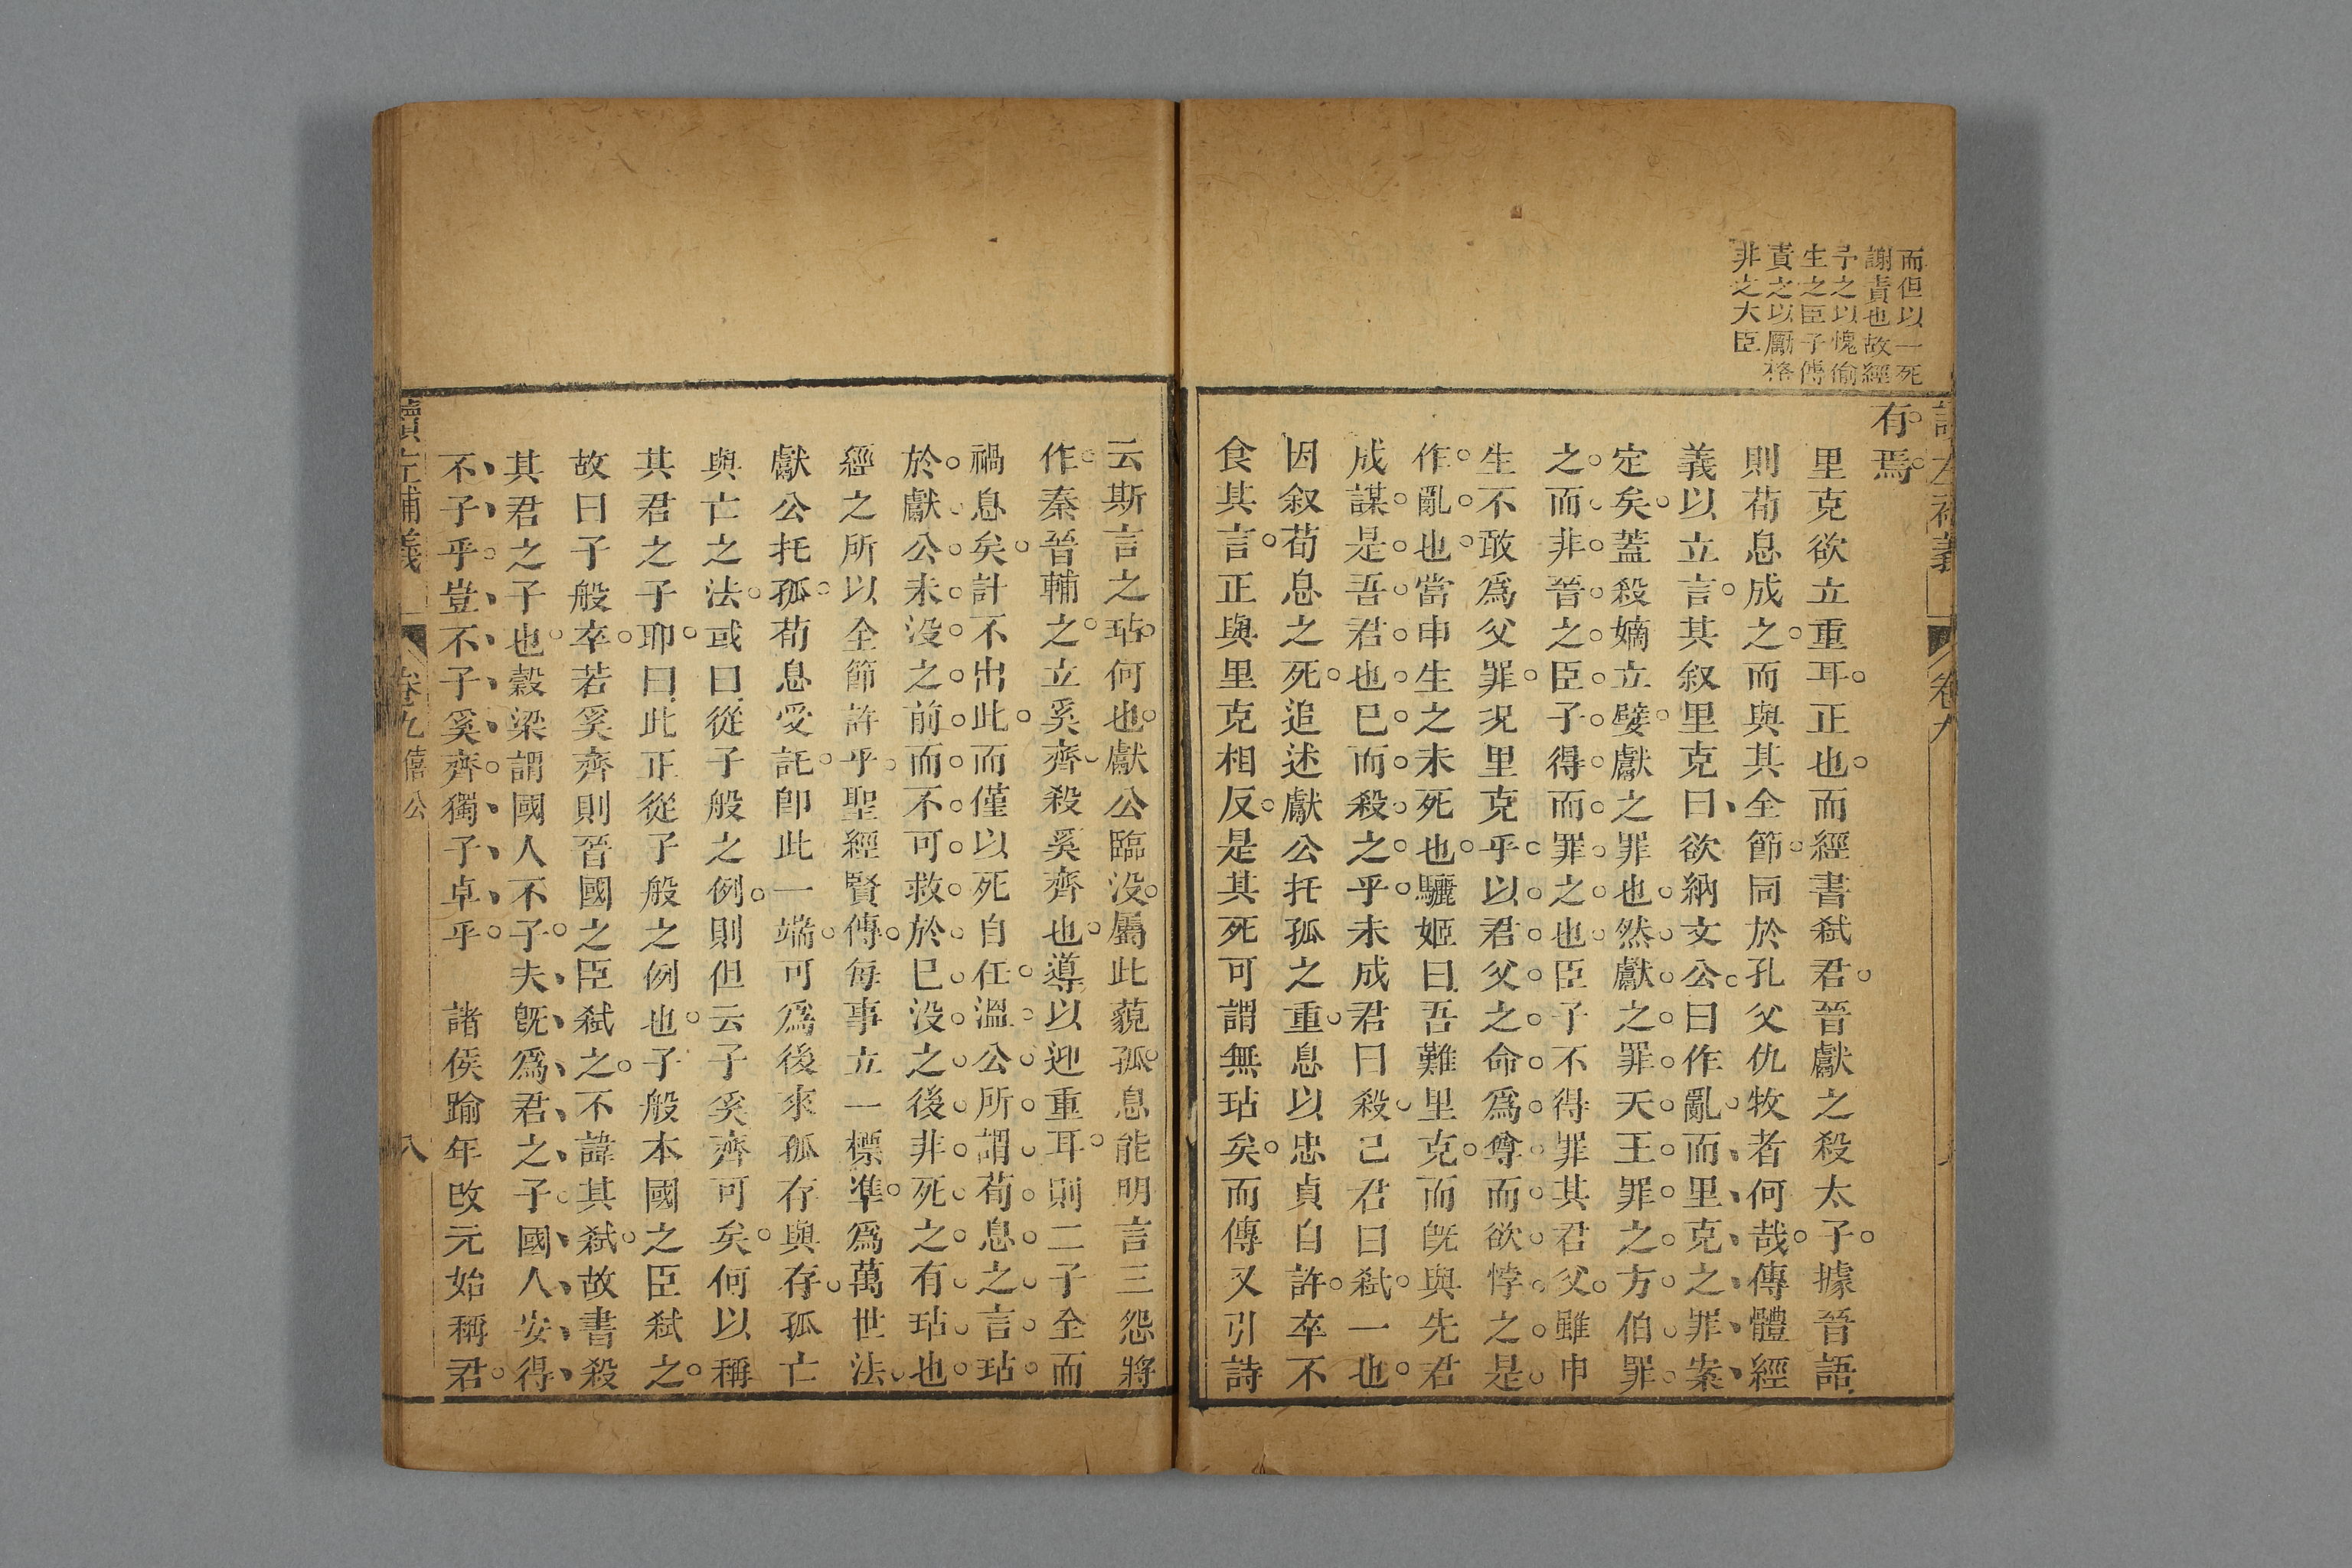 而但以一死
謝責也故經
予之以愧偷
生之臣子傳
責之以厲格
非之大臣
有焉
里克欲立重耳正也而經書弑君晉獻之殺太子據晉語
則荀息成之而與其全節同於孔父仇牧者何哉傳體經
義以立言其叙里克曰欲納文公曰作亂而里克之罪案
定矣蓋殺嫡立嬖獻之罪也然獻之罪天王罪之方伯罪
之而非晉之臣子得而罪之也臣子不得罪其君父雖申
生不敢爲父罪况里克乎以君父之命爲尊而欲悖之是
作亂也當申生之未死也驪姬曰吾難里克而旣與先君
成謀是吾君也已而殺之乎未成君曰殺己君曰弑一也
因叙荀息之死追述獻公托孤之重息以忠貞自許卒不
食其言正與里克相反是其死可謂無玷矣而傳又引詩
云斯言之玷何也獻公臨没屬此藐孤息能明言三怨將
作秦晉輔之立奚齊殺奚齊也導以迎重耳則二子全而
禍息矣計不出此而僅以死自任溫公所謂荀息之言玷
於獻公未没之前而不可救於已没之後非死之有玷也
經之所以全節許乎聖經賢傳每事立一標準爲萬世法
獻公托孤荀息受託卽此一端可爲後來孤存與存孤亡
與亡之法或曰從子般之例則但云子奚齊可矣何以稱
其君之子耶曰此正從子般之例也子般本國之臣弑之
故曰子般卒若奚齊則晉國之臣弑之不諱其弑故書殺
其君之子也穀梁謂國人不子夫旣爲君之子國人安得
不子乎豈不子奚齊獨子卓乎　諸侯踰年改元始稱君
讀左補義
卷九 僖公
八